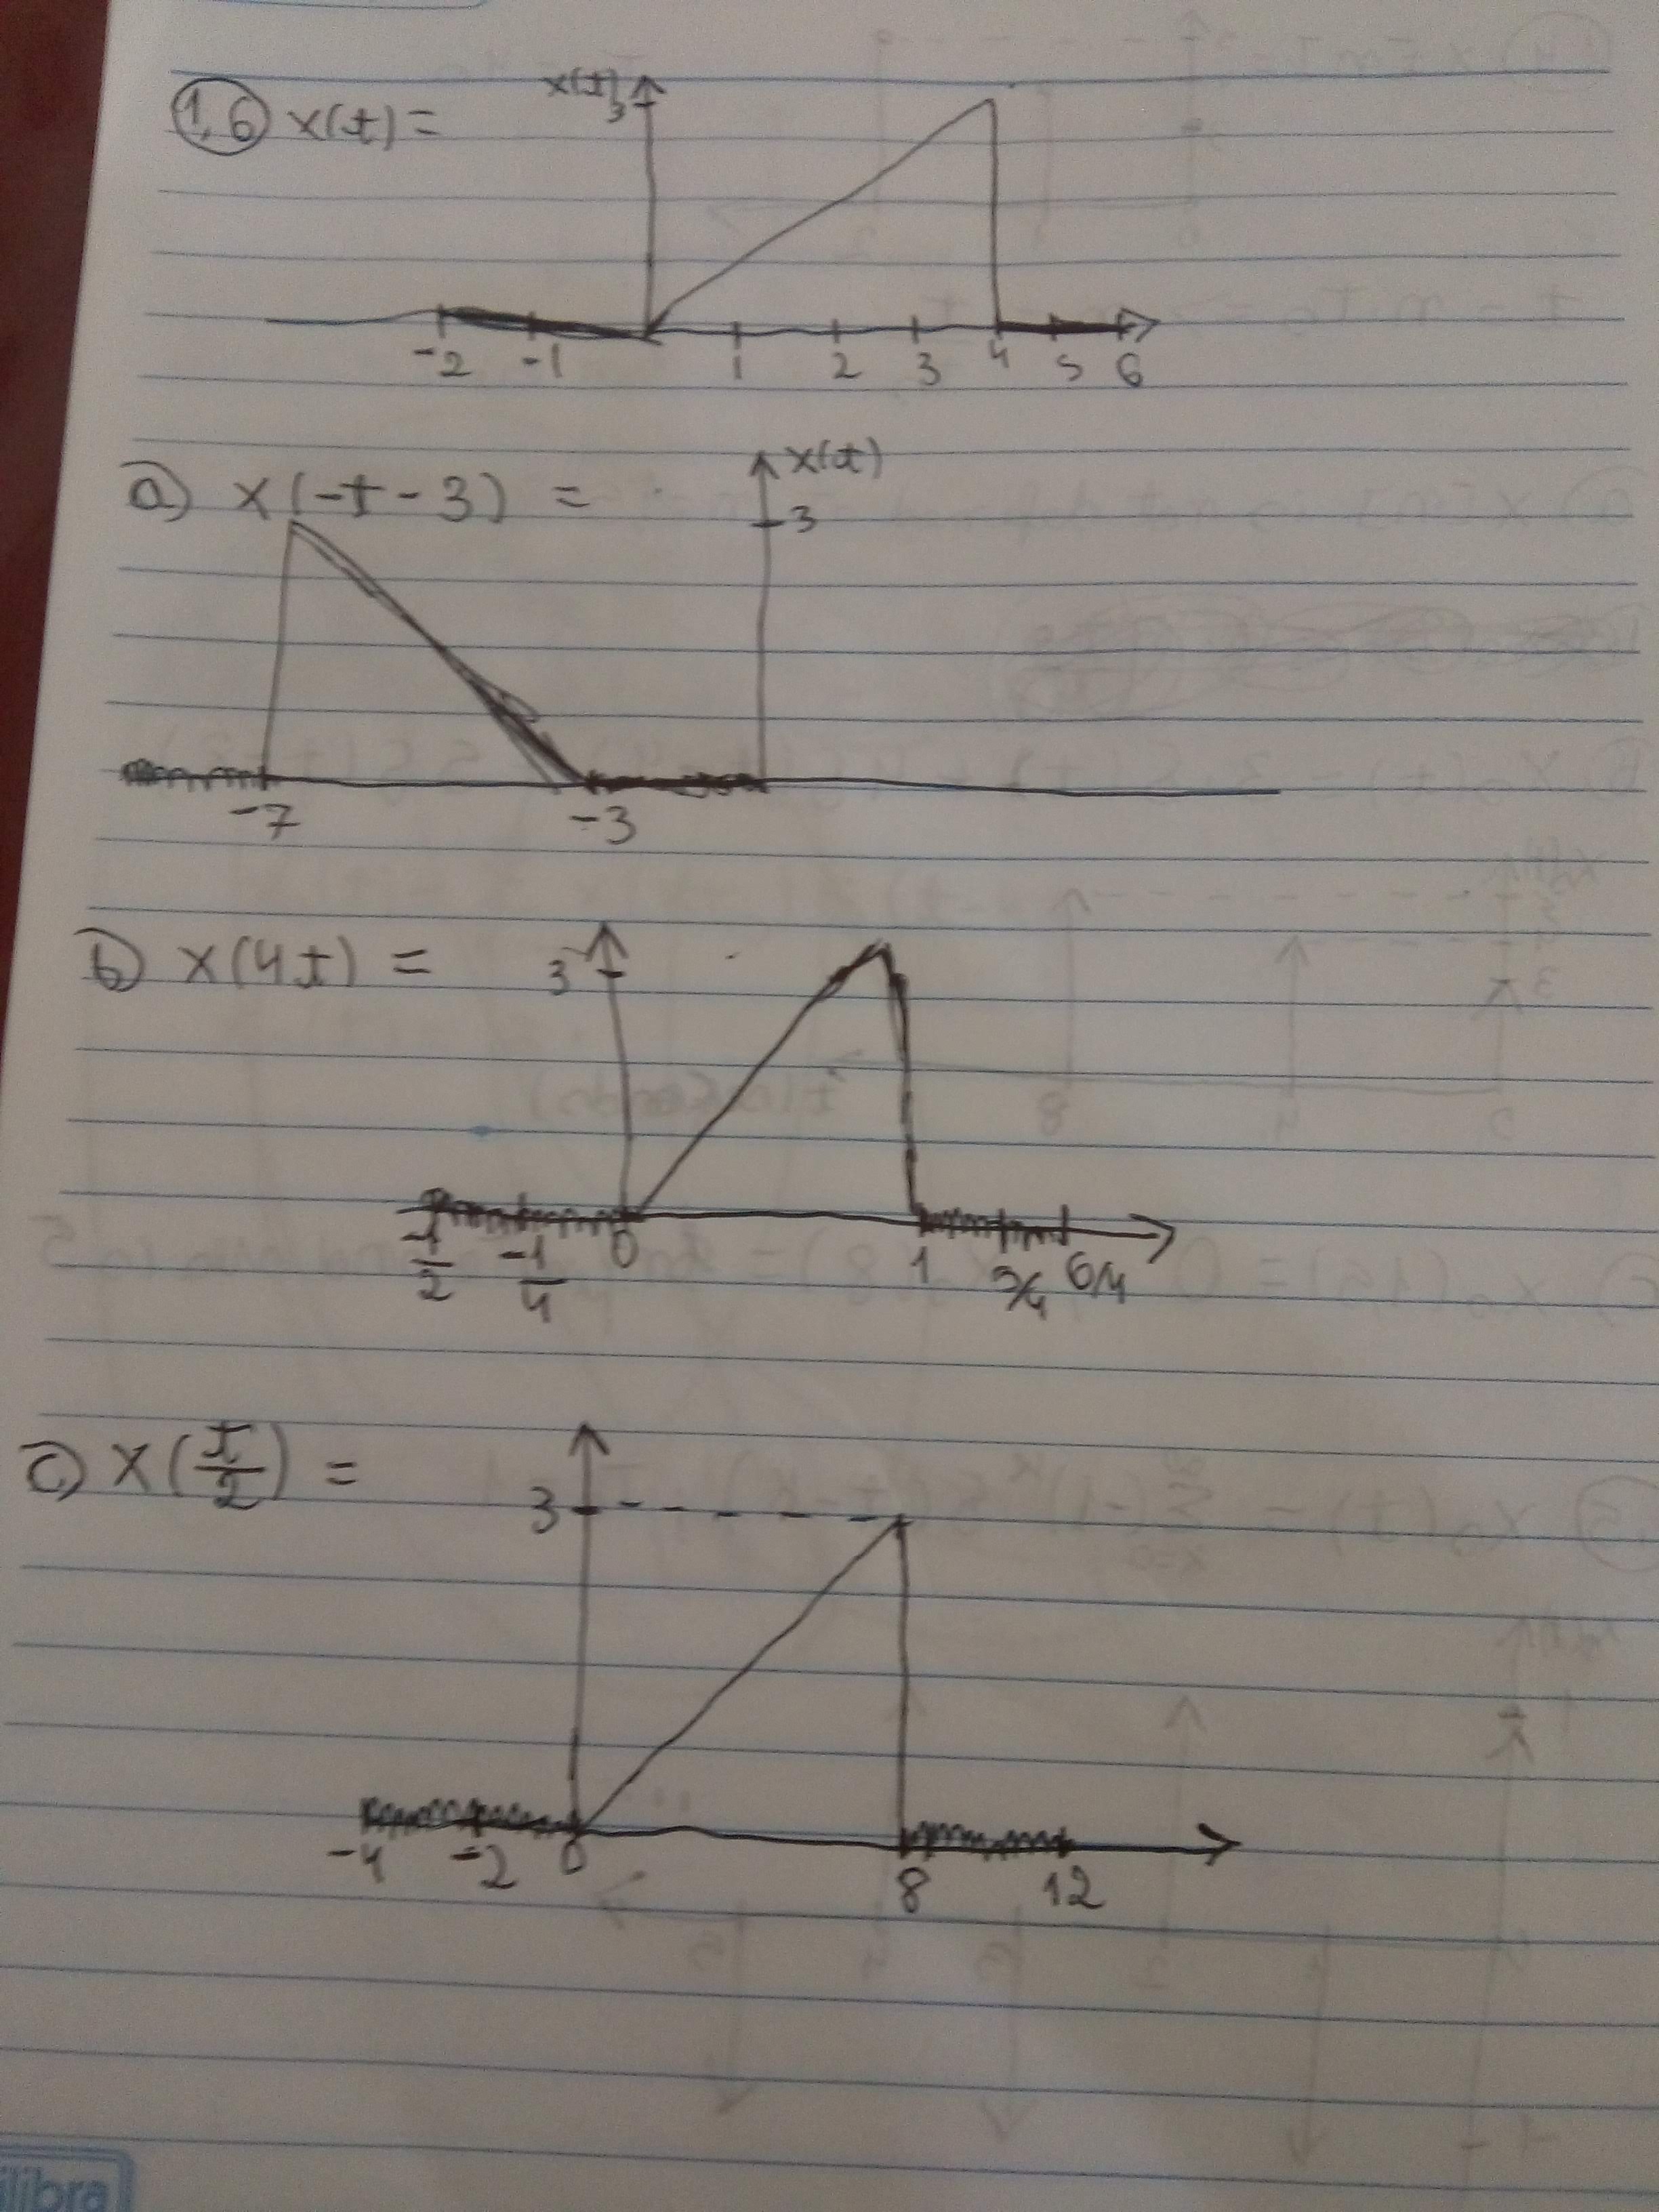 1,6 x(t) =
x(t)
3
-2 -1 1 2 3 4 5 6
a) x(-t-3) =
x(t)
3
-7 -3
b) x(4t) =
3
-1/2 -1/4 0 1 5/4 6/4
c) x(t/2) =
3
-4 -2 0 8 12
ilibra